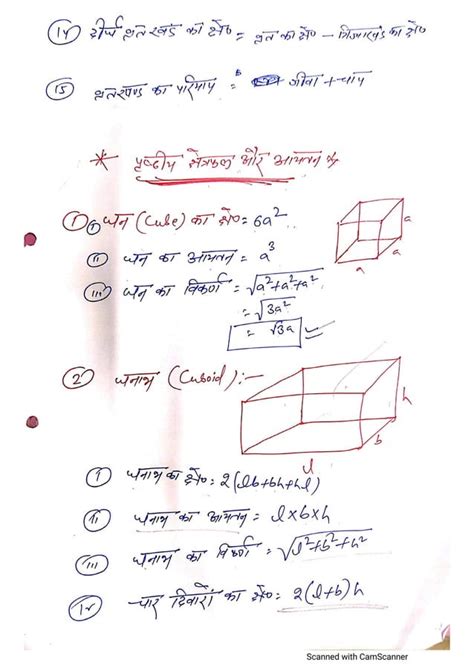 (14) दीर्घ वृतखंड का क्षे० = वृत का क्षे० - त्रिज्याखंड का क्षे०
(15) वृतखण्ड का परिमाप = जीवा + चाप
* पृष्ठीय क्षेत्रफल और आयतन
(1) (i) घन (Cube) का क्षे० = 6a²
(ii) घन का आयतन = a³
(iii) घन का विकर्ण = √a²+a²+a²
= √3a²
= √3a
a
a
a
(2) घनाभ (Cuboid) :-
h
b
l
(i) घनाभ का क्षे० = 2(lb+bh+hl)
(ii) घनाभ का आयतन = l×b×h
(iii) घनाभ का विकर्ण = √l²+b²+h²
(iv) चार दिवारों का क्षे० = 2(l+b)h
Scanned with CamScanner